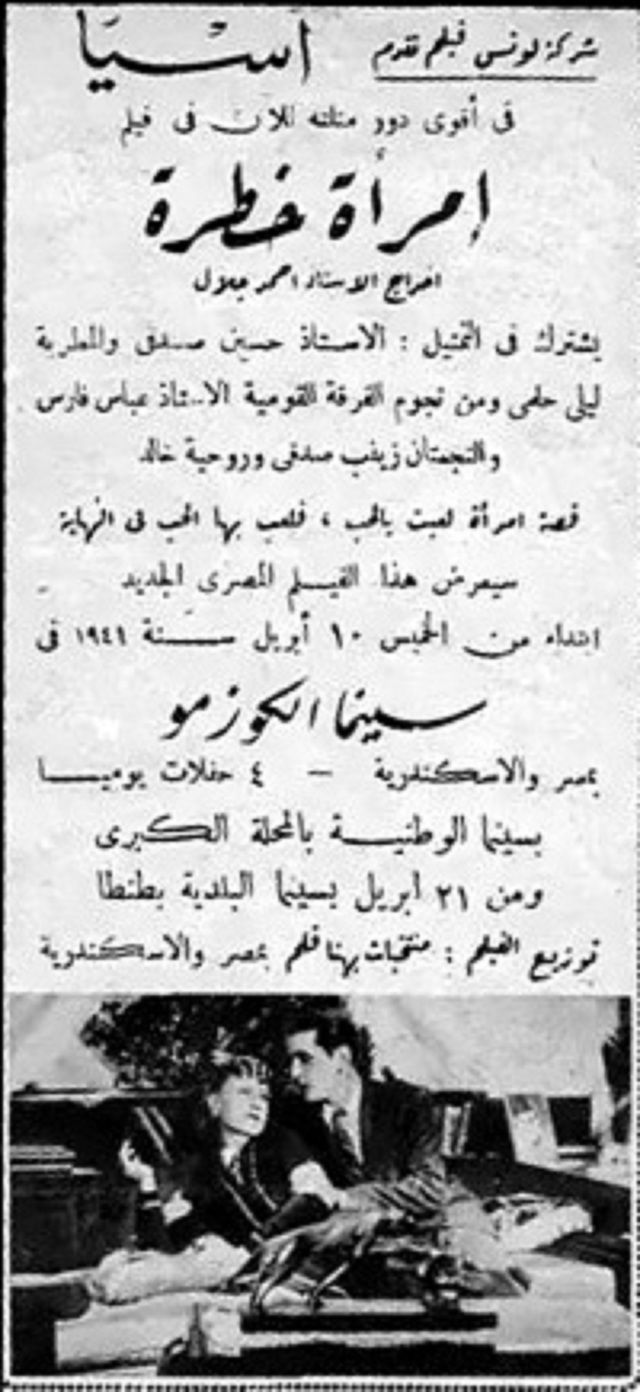 شركة لوتس فيلم تقدم
آسيا
فى أقوى دور مثلته للآن فى فيلم
إمرأة خطرة
اخراج الاستاذ احمد جلال
يشترك فى التمثيل : الاستاذ حسين صدقى والمطربة
ليلى حلمى ومن نجوم الفرقة القومية الاستاذ عباس فارس
والنجمتان زينب صدقى وروحية خالد
قصة امرأة لعبت بالحب ، فلعب بها الحب فى النهاية
سيعرض هذا الفيلم المصرى الجديد
ابتداء من الخميس ١٠ أبريل سنة ١٩٤١ فى
سينما الكوزمو
بمصر والاسكندرية — ٤ حفلات يوميا
بسينما الوطنية بالمحلة الكبرى
ومن ٢١ ابريل بسينما البلدية بطنطا
توزيع الفيلم : منتخبات بهنا فلم بمصر والاسكندرية